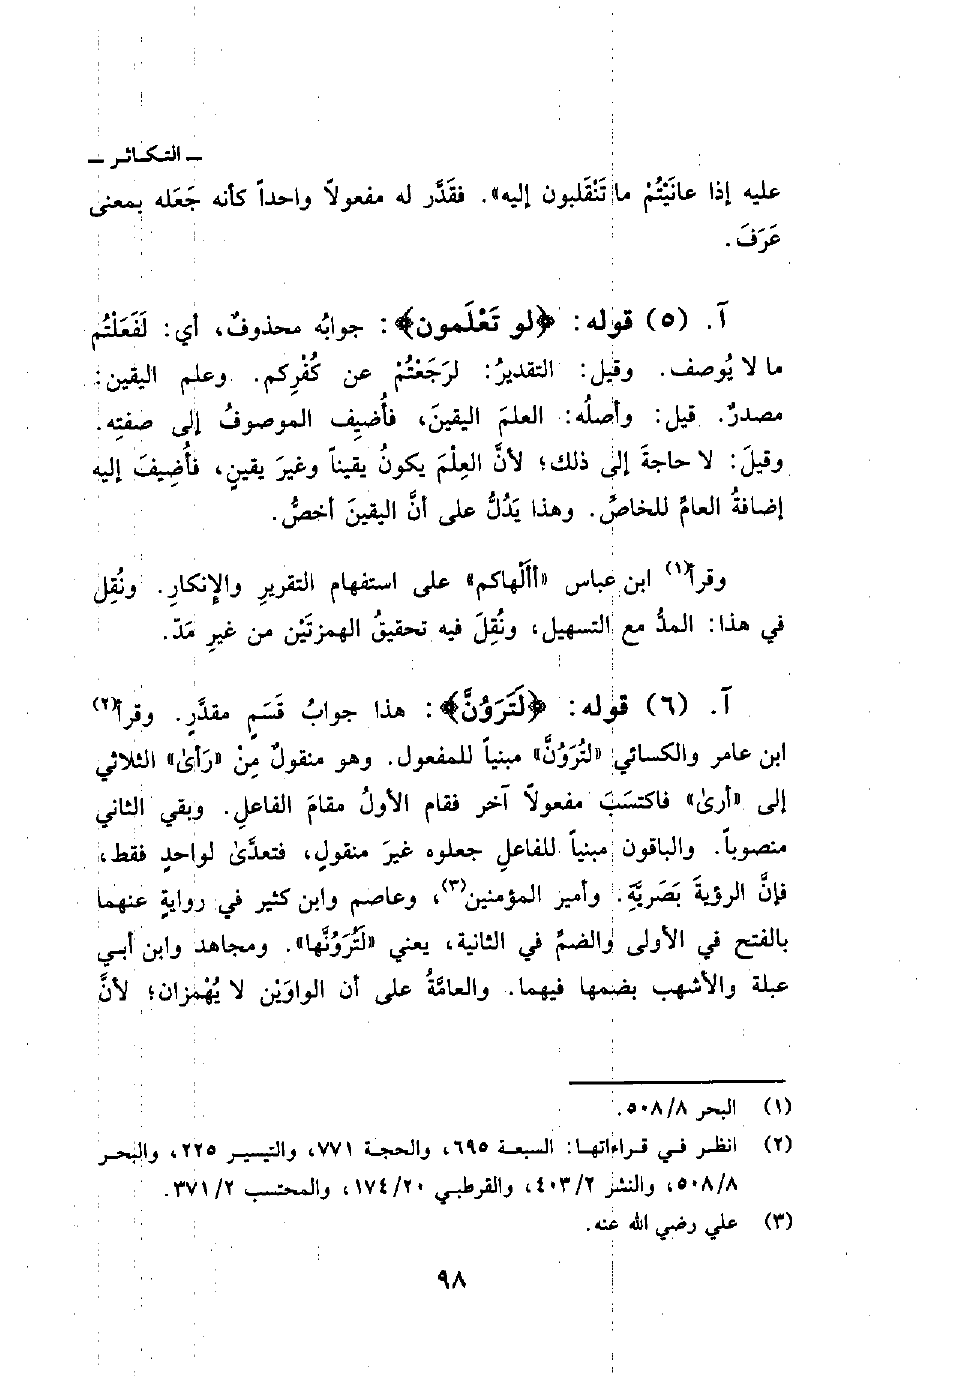 ـ التكاثر ـ
عليه إذا عانَيْتُمْ ما تَنْقَلبون إليه». فقَدَّر له مفعولاً واحداً كأنه جَعَله بمعنى
عَرَفَ.
آ. (٥) قوله: ﴿لو تَعْلَمون﴾: جوابُه محذوفٌ، أي: لَفَعَلْتُم
ما لا يُوصف. وقيل: التقديرُ: لرَجَعْتُمْ عن كُفْرِكم. وعلم اليقين:
مصدرٌ. قيل: وأصلُه: العلمَ اليقينَ، فأُضيف الموصوفُ إلى صفتِه.
وقيلَ: لا حاجةَ إلى ذلك؛ لأنَّ العِلْمَ يكونُ يقيناً وغيرَ يقينٍ، فأُضِيفَ إليه
إضافةُ العامِّ للخاصِّ. وهذا يَدُلُّ على أنَّ اليقينَ أخصُّ.
وقرأ(١) ابن عباس «أأَلْهاكم» على استفهام التقريرِ والإِنكارِ. ونُقِل
في هذا: المدُّ مع التسهيل، ونُقِلَ فيه تحقيقُ الهمزتَيْن من غيرِ مَدّ.
آ. (٦) قوله: ﴿لَتَرَوُنَّ﴾: هذا جوابُ قَسَمٍ مقدَّرٍ. وقرأ(٢)
ابن عامر والكسائي «لتُرَوُنَّ» مبنياً للمفعول. وهو منقولٌ مِنْ «رَأىٰ» الثلاثي
إلى «أرىٰ» فاكتسَبَ مفعولاً آخر فقام الأولُ مقامَ الفاعلِ. وبقي الثاني
منصوباً. والباقون مبنياً للفاعلِ جعلوه غيرَ منقولٍ، فتعدَّىٰ لواحدٍ فقط،
فإنَّ الرؤيةَ بَصَريَّةٍ. وأمير المؤمنين(٣)، وعاصم وابن كثير في روايةٍ عنهما
بالفتح في الأولى والضمِّ في الثانية، يعني «لَتَرَوُنَّها». ومجاهد وابن أبـي
عبلة والأشهب بضمها فيهما. والعامَّةُ على أن الواوَيْن لا يُهْمزان؛ لأنَّ
(١) البحر ٥٠٨/٨.
(٢) انظر في قراءاتها: السبعة ٦٩٥، والحجة ٧٧١، والتيسير ٢٢٥، والبحر
٥٠٨/٨، والنشر ٤٠٣/٢، والقرطبي ١٧٤/٢٠، والمحتسب ٣٧١/٢.
(٣) علي رضي الله عنه.
٩٨